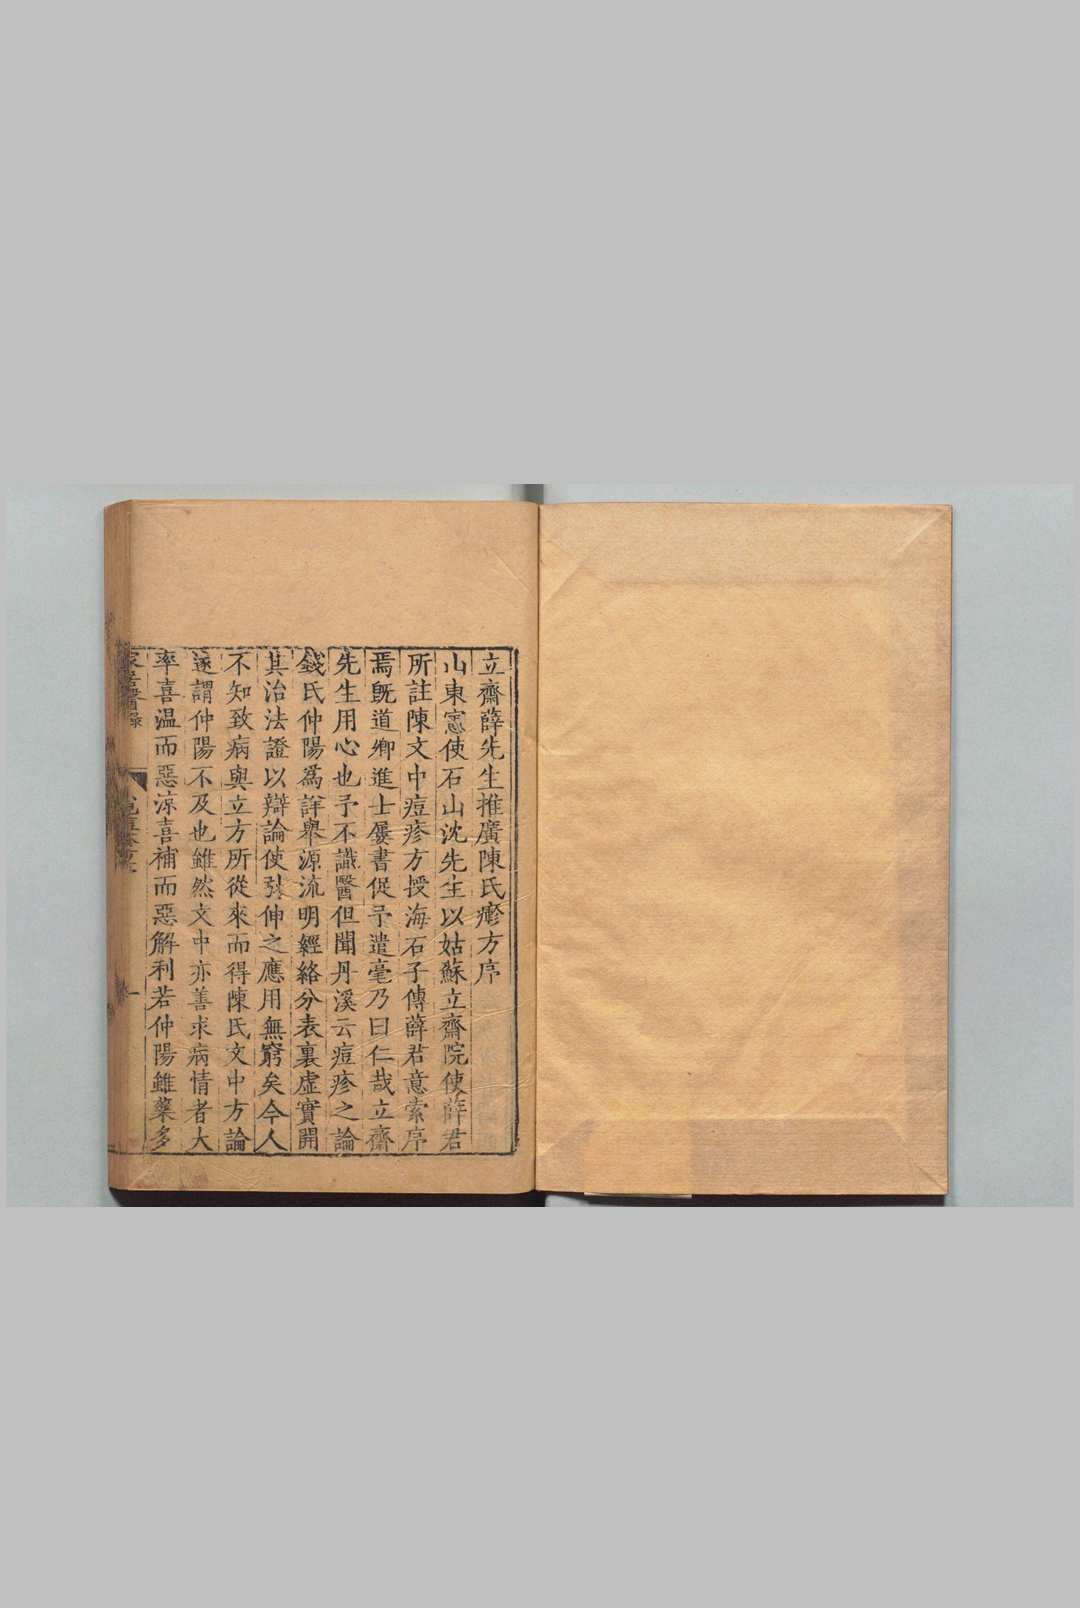 立齋薛先生推廣陳氏瘮方序
山東憲使石山沈先生以姑蘇立齋院使薛君
所註陳文中痘疹方授海石子傳薛君意索序
焉旣道卿進士屡書促予遣毫乃曰仁哉立齋
先生用心也予不識醫但聞丹溪云痘疹之論
錢氏仲陽爲詳舉源流明經絡分表裏虛實開
其治法證以辯論使引伸之應用無窮矣今人
不知致病與立方所從來而得陳氏文中方論
遂謂仲陽不及也雖然文中亦善求病情者大
率喜温而惡凉喜補而惡解利若仲陽雖藥多
家居醫錄
一